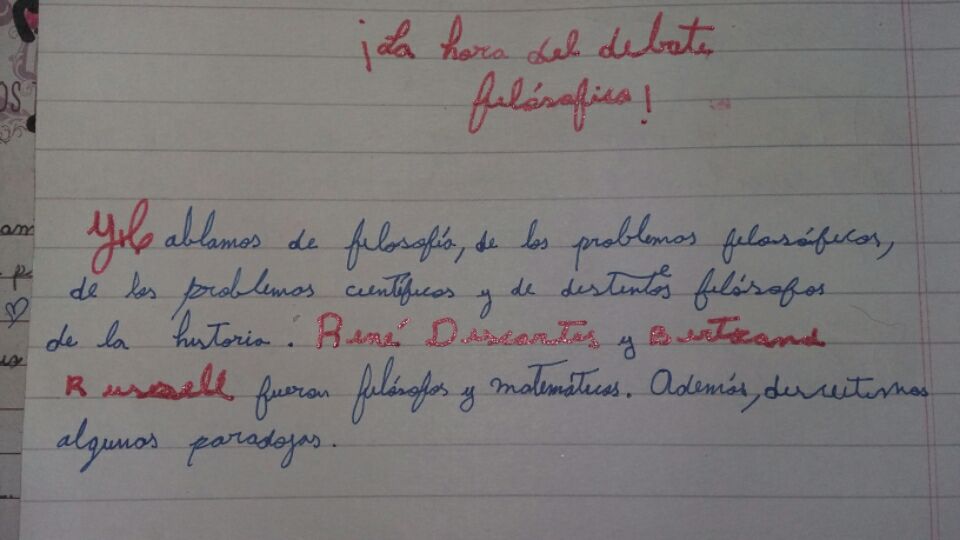 ¡La hora del debate
filósofico!
Y Hablamos de filosofía, de los problemas filosóficos,
de los problemas científicos y de distintos filósofos
de la historia. René Descartes y Bertrand
Russell fueron filósofos y matemáticos. Además, discutimos
algunas paradojas.